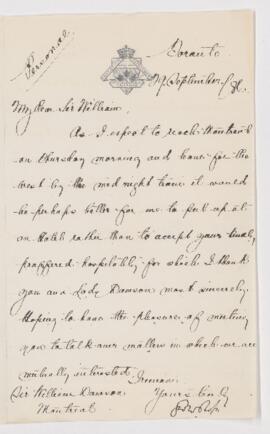 Personal
Toronto
September
My dear Sir William,
As I expect to reach Montreal
on Thursday morning and leave for the
west by the midnight train it would
be perhaps better for me to put up at
an Hotel rather than to accept your kindly
proffered hospitality for which I thank
you and Lady Dawson most sincerely.
Hoping to have the pleasure of meeting
you to talk over matters in which we are
mutually interested.
I remain
Yours truly
Sir William Dawson
Montreal